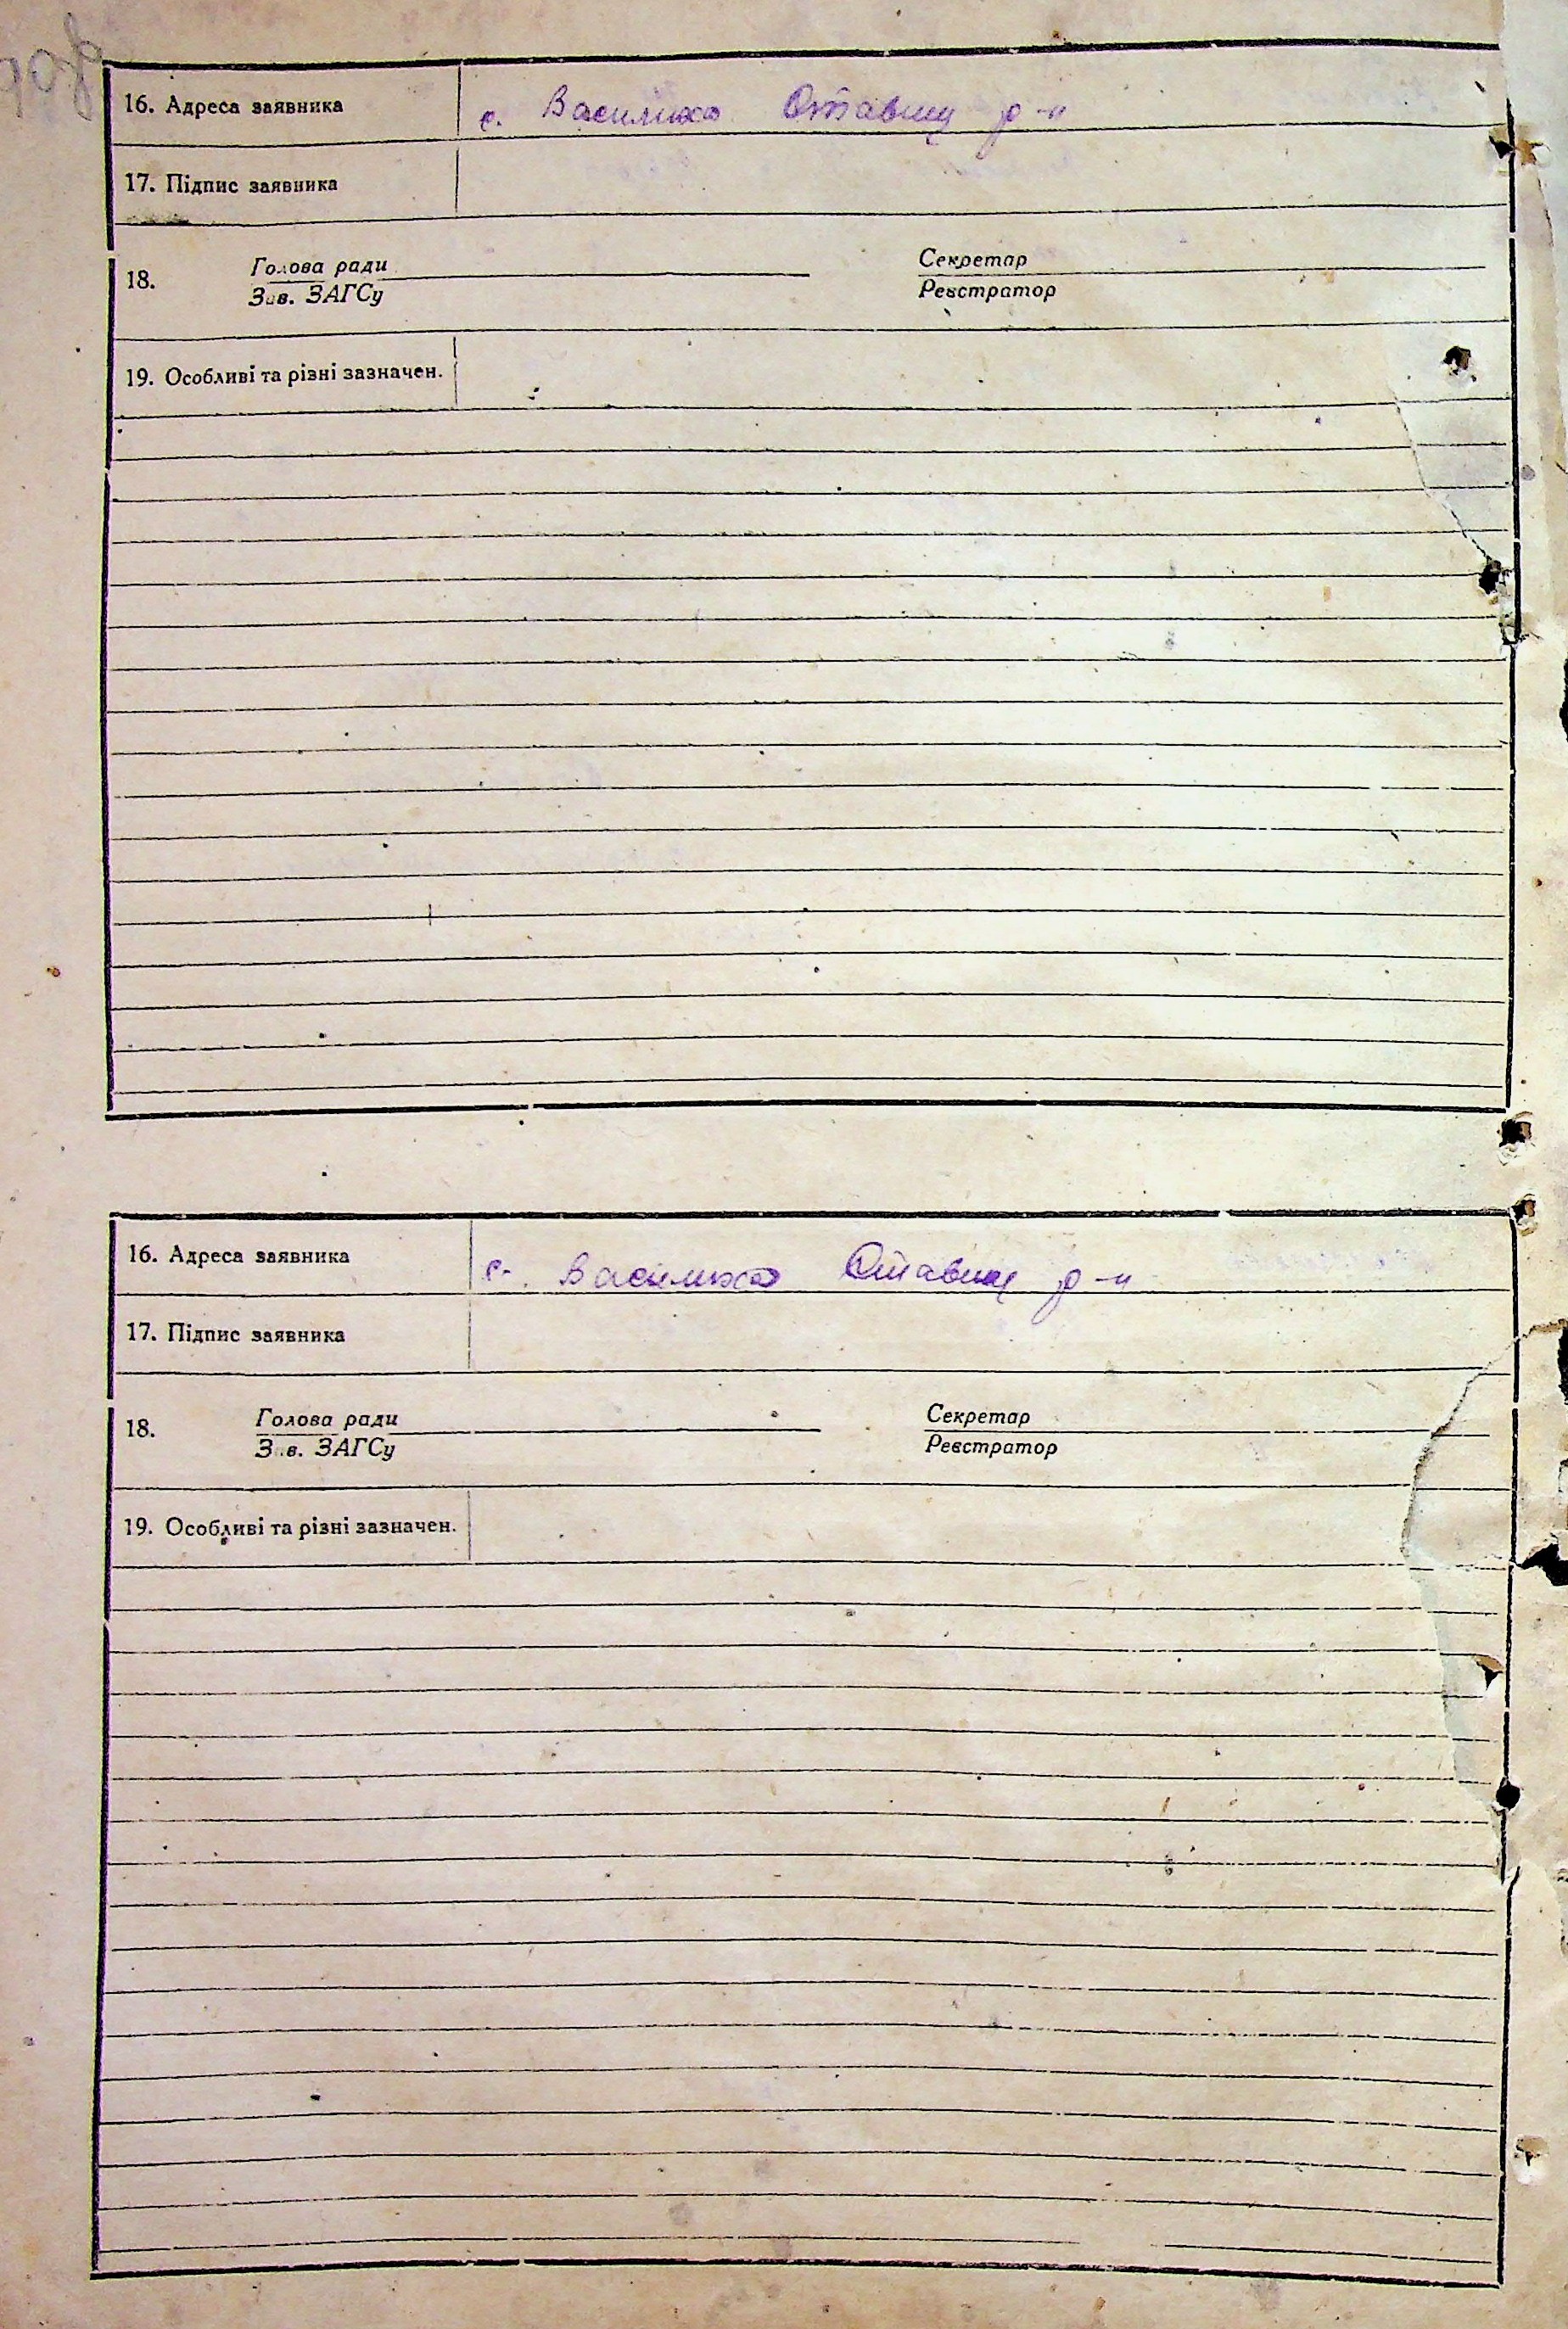 16. Адреса заявника с. Василиха Ставищ р-н
17. Підпис заявника
18. Голова ради Секретар
Зав. ЗАГСу Реєстратор
19. Особливі та різні зазначен.
16. Адреса заявника с. Василиха Ставищ р-н
17. Підпис заявника
18. Голова ради Секретар
Зав. ЗАГСу Реєстратор
19. Особливі та різні зазначен.